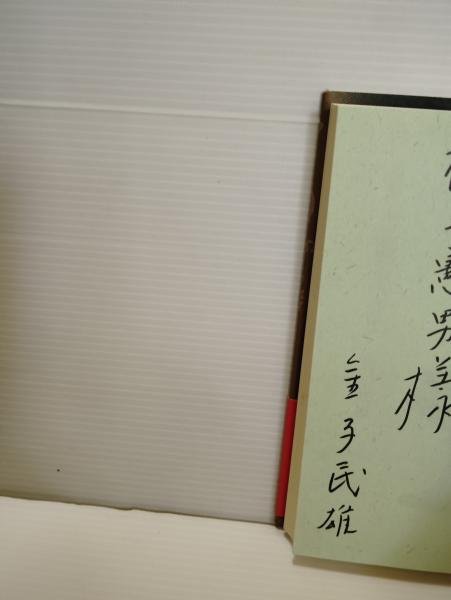 憲男様
金子民雄